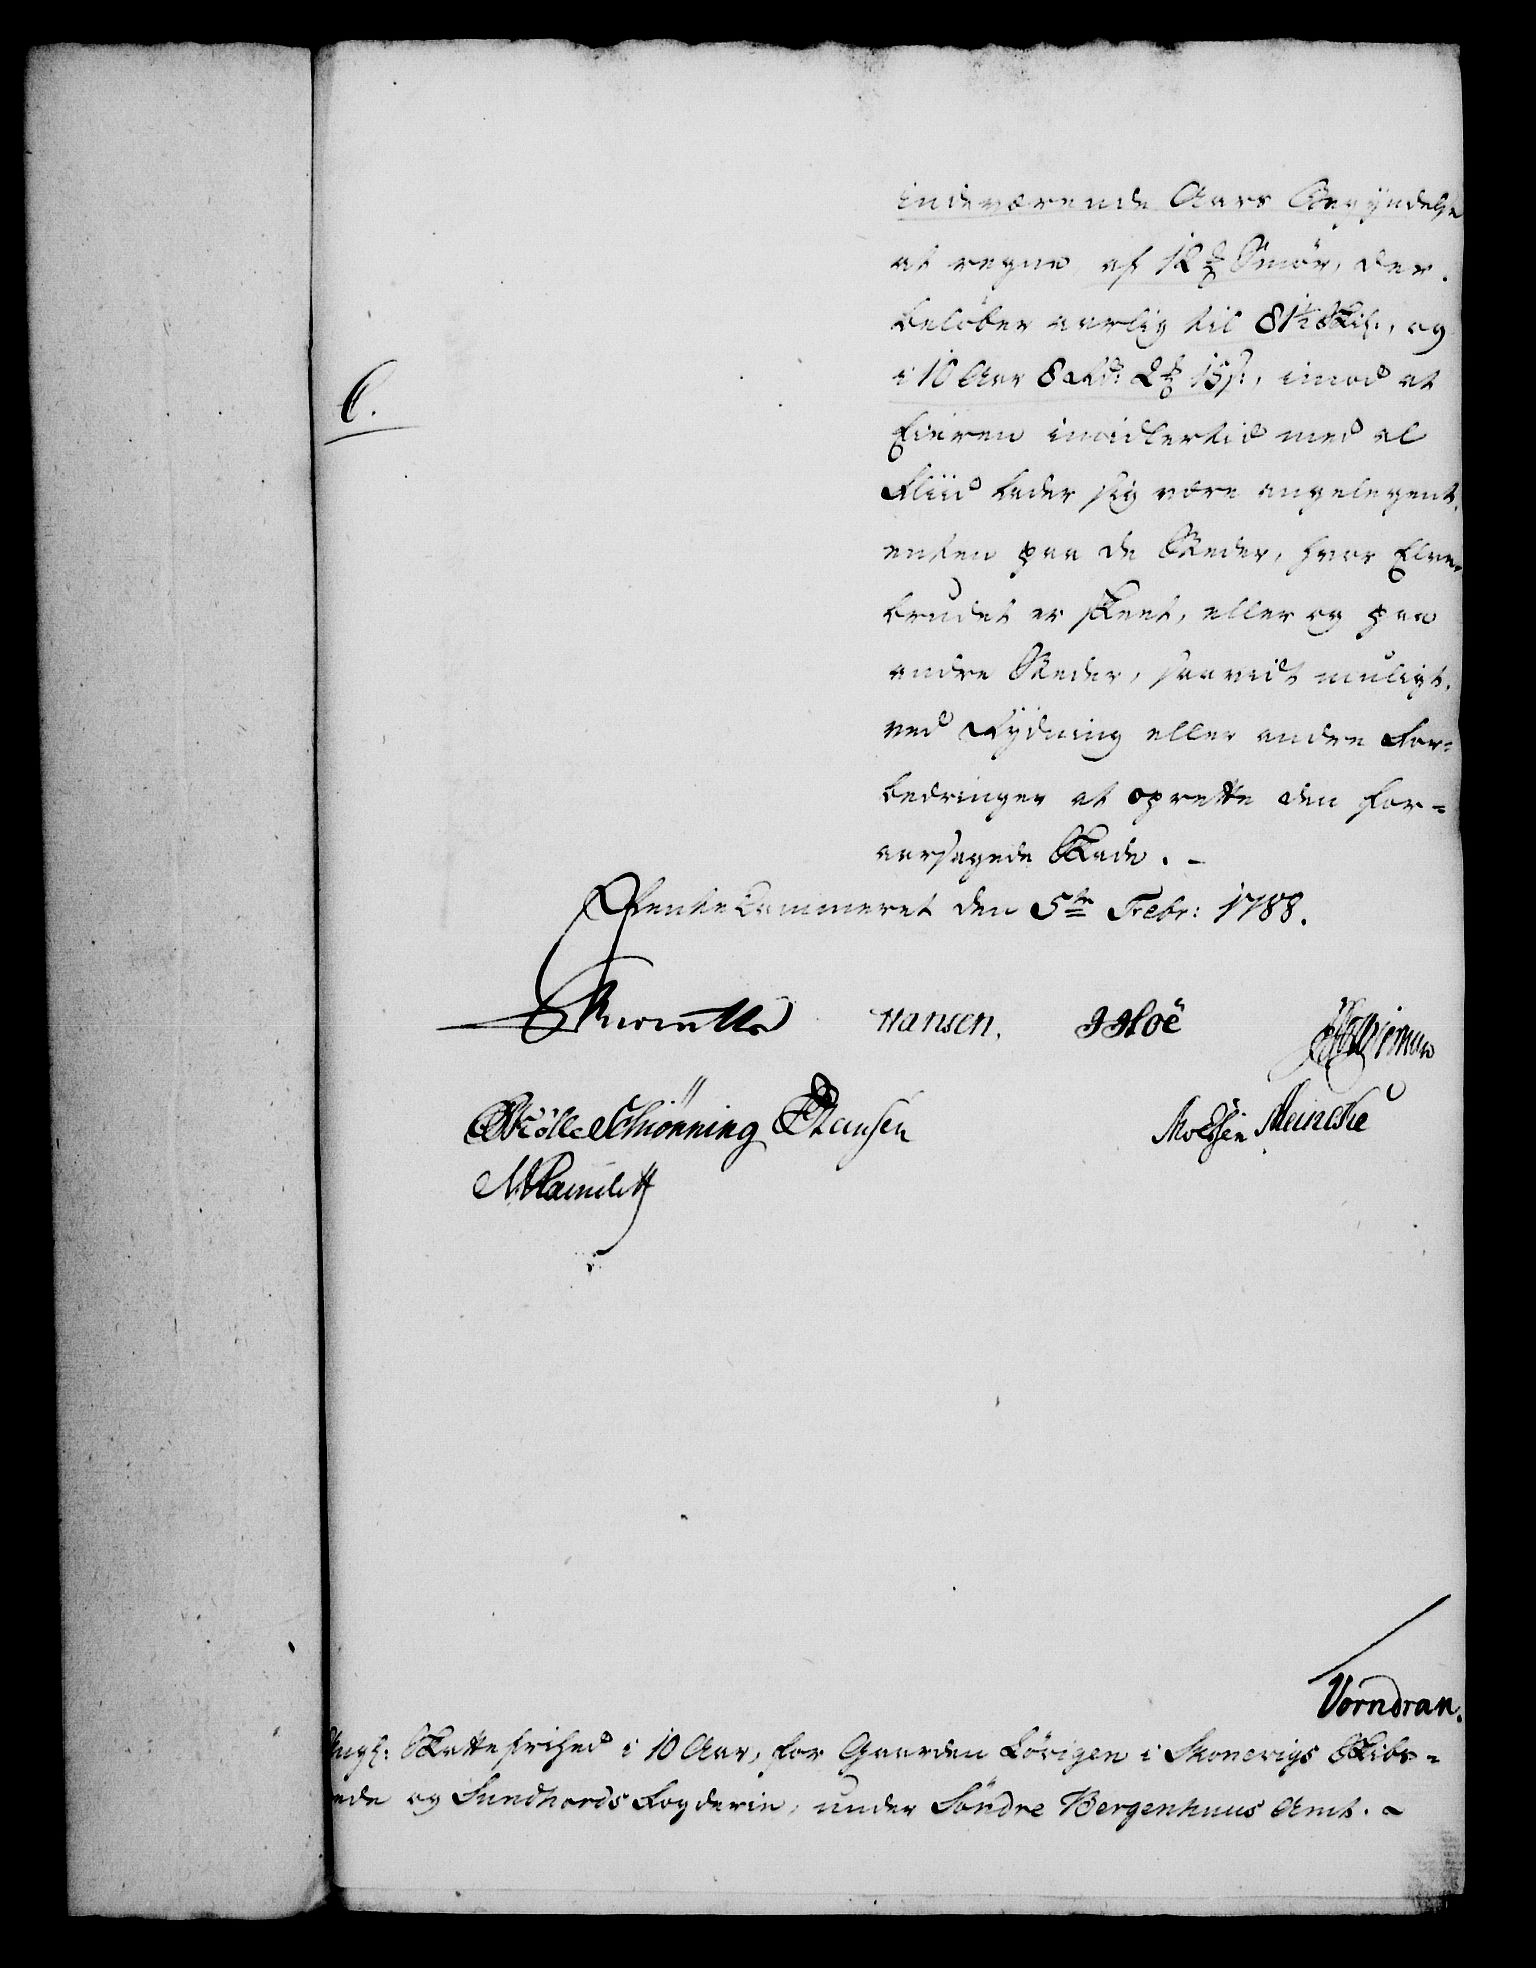 indeværende Aars Begyndelse
at regne, af 12 ℔ Smör, der
belöber aarlig til 81½ Skil:, og
i 10 Aar 8 Rd: 2 ℔ 15 s:, imod at
Eieren imidlertid med al
Fliid lader sig være angelegent,
enten paa de Steder, hvor Elve-
brudet er skeet, eller og paa
andre Steder, saavidt muligt,
ved Rydning eller andre For-
bedringer at oprette den for-
aarsagede Skade. -
6.
Rentekammeret den 5te Febr: 1788.
Hansen. Hoë
Schiönning Hansen Meincke
Vorndran.
Angl: Skattefrihed i 10 Aar, for Gaarden Lörigen i Skonevigs Skibr-
ede og Sundhords Fogderie, under Söndre Bergenhuus Amt. -